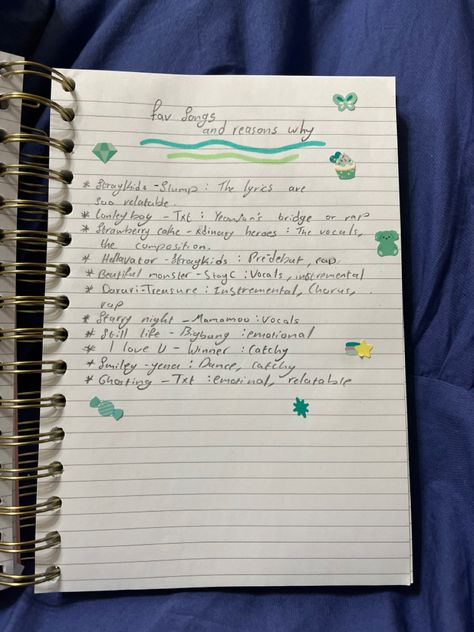 fav songs
and reasons why
* Straykids - Slump : The lyrics are
soo relatable.
* Lonley boy - Txt : Yeonjun's bridge or rap
* Strawberry cake - Xdinary heroes : The vocals,
the composition.
* Hellavator - Straykids : Pre debut, rap
* Beutiful monster - StayC : Vocals, instremental
* Darari - Treasure : Instremental, Chorus,
rap
* Starry night - Mamamoo : vocals
* Still life - Bigbang : emotional
* I love U - Winner : catchy
* Smiley - yena : Dance, catchy
* Ghosting - Txt : emotinal, relatable